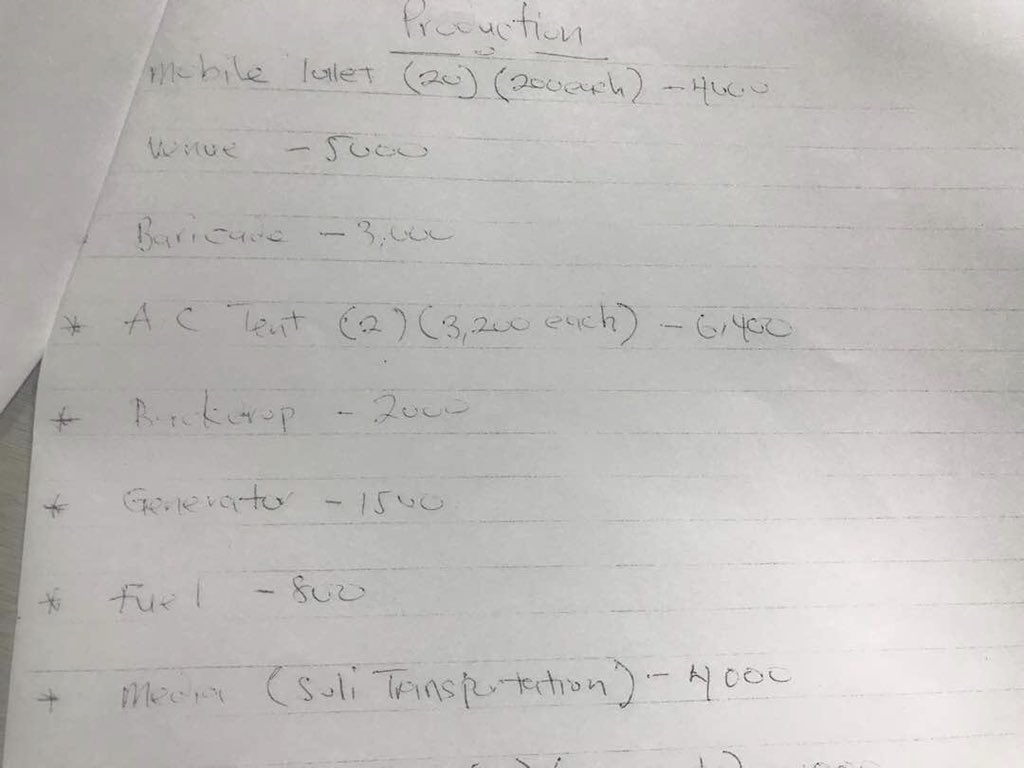 Production
Mobile Toilet (20) (200 each) - 4000
Venue - 5000
Baricade - 3,000
* A C Tent (2) (3,200 each) - 6,400
* Backdrop - 2000
* Generator - 1500
* Fuel - 800
* Media (Soli Transportation) - 4000